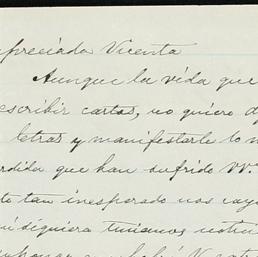 apreciada Vicenta
Aunque la vida que
escribir cartas, no quiero
letras y manifestarle lo
que han sufrido VV.
to tan inesperado nos cayó
siquiera teníamos